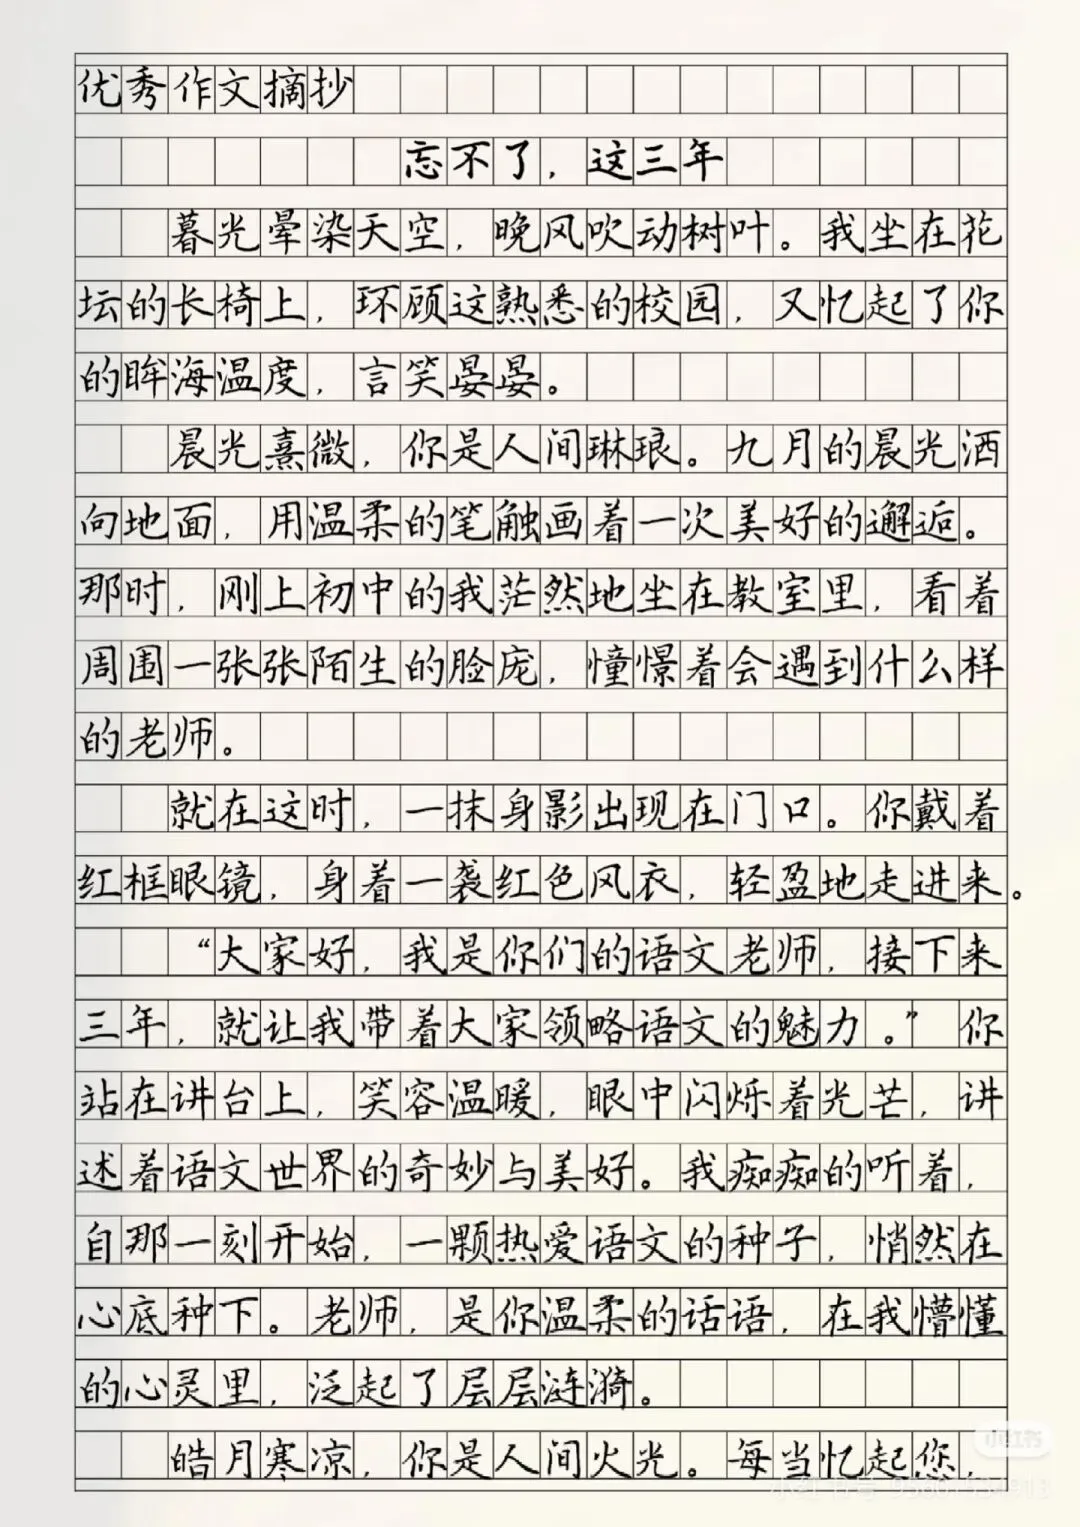 优秀作文摘抄
忘不了，这三年
暮光晕染天空，晚风吹动树叶。我坐在花
坛的长椅上，环顾这熟悉的校园，又忆起了你
的眸海温度，言笑晏晏。
晨光熹微，你是人间琳琅。九月的晨光洒
向地面，用温柔的笔触画着一次美好的邂逅。
那时，刚上初中的我茫然地坐在教室里，看着
周围一张张陌生的脸庞，憧憬着会遇到什么样
的老师。
就在这时，一抹身影出现在门口。你戴着
红框眼镜，身着一袭红色风衣，轻盈地走进来。
“大家好，我是你们的语文老师，接下来
三年，就让我带着大家领略语文的魅力。”你
站在讲台上，笑容温暖，眼中闪烁着光芒，讲
述着语文世界的奇妙与美好。我痴痴的听着，
自那一刻开始，一颗热爱语文的种子，悄然在
心底种下。老师，是你温柔的话语，在我懵懂
的心灵里，泛起了层层涟漪。
皓月寒凉，你是人间火光。每当忆起您，
小红书